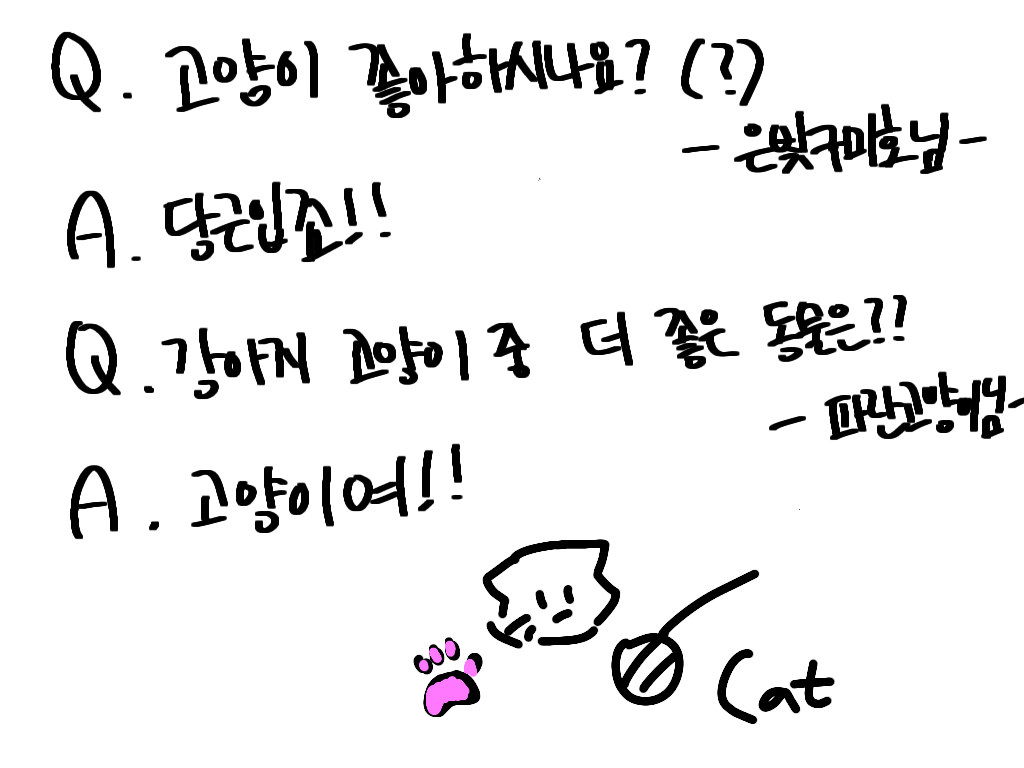 Q. 고양이 좋아하시나요? (?)
- 은빛구미호님 -
A. 당근입죠!!
Q. 강아지 고양이 중 더 좋은 동물은??
- 파란고양이님 -
A. 고양이여!!
Cat